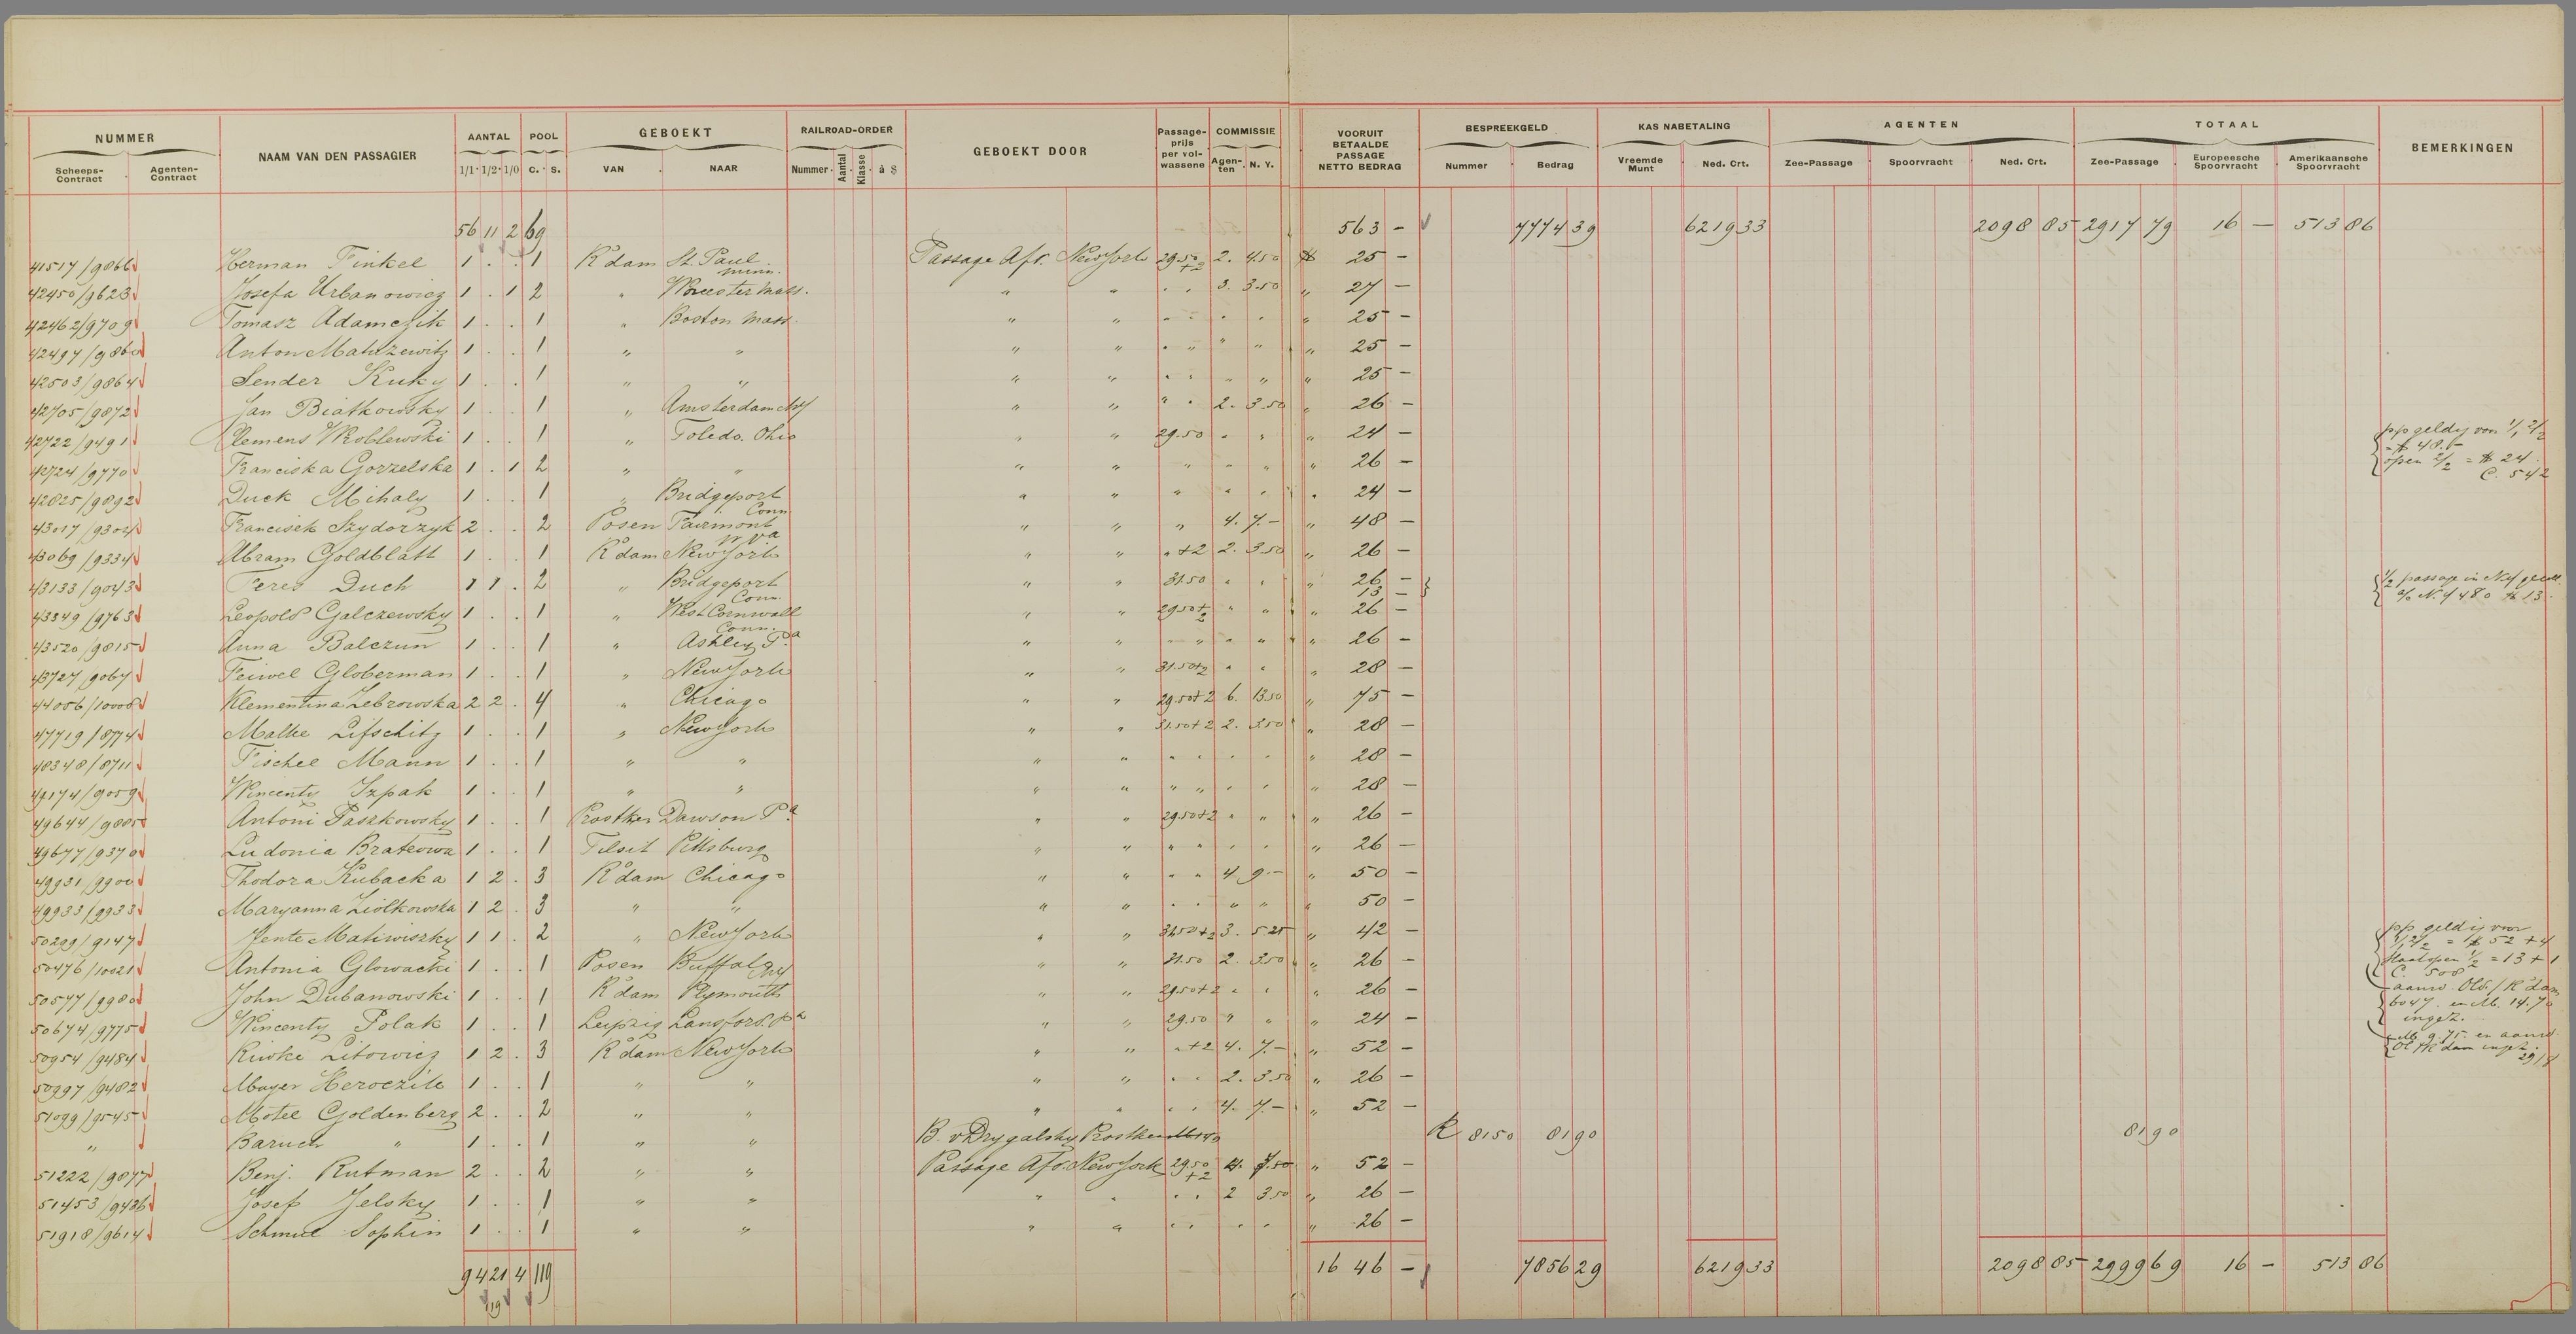 NUMMER NAAM VAN DEN PASSAGIER AANTAL POOL GEBOEKT RAILROAD-ORDER GEBOEKT DOOR Passage-prijs per vol-wassene COMMISSIE VOORUIT BETAALDE PASSAGE NETTO BEDRAG BESPREEKGELD KAS NABETALING AGENTEN TOTAAL BEMERKINGEN
Scheeps-Contract Agenten-Contract 1/1 1/2 1/0 C. S. VAN NAAR Nummer Aantal Klasse à $ Agen-ten N. Y. Nummer Bedrag Vreemde Munt Ned. Crt. Zee-Passage Spoorvracht Ned. Crt. Zee-Passage Europeesche Spoorvracht Amerikaansche Spoorvracht
56 11 2 69 563 - 7774 39 6219 33 2098 85 2917 79 16 - 513 86
41517/9866 Herman Finkel 1 . . 1 R'dam St. Paul Minn. Passage Afr. New York 29.50 +2 2. 4.50 $ 25 -
42450/9623 Josefa Urbanowicz 1 . 1 2 " Worcester Mass. " " " " 3. 3.50 " 27 -
42462/9709 Tomasz Adamczik 1 . . 1 " Boston Mass. " " " " " " " 25 -
42497/9860 Anton Mahrzewitz 1 . . 1 " " " " " " " " " 25 -
42503/9864 Sender Kuky 1 . . 1 " " " " " " " " " 25 -
42705/9872 Jan Biatkowsky 1 . . 1 " Amsterdam NY " " " " 2. 3.50 " 26 -
42722/9491 Clemens Wroblewski 1 . . 1 " Toledo. Ohio " " 29.50 " " " 24 - pp geldig voor 1/1 2/2
= $ 48.-
42724/9770 Franciska Gorzelska 1 . 1 2 " " " " " " " " 26 - open 2/2 = $ 24.
C. 542
42825/9892 Duck Mihaly 1 . . 1 " Bridgeport Conn " " " " " " 24 -
43017/9304 Francisek Szydorzyk 2 . . 2 Posen Fairmont W Va " " " 4. 7.- " 48 -
43069/9334 Abram Goldblatt 1 . . 1 R'dam New York " " " +2 2. 3.50 " 26 -
43133/9043 Feres Duch 1 1 . 2 " Bridgeport Conn. " " 31.50 " " " 26 - 1/2 passage in
13 - $ 13.
43349/9763 Leopold Galczewsky 1 . . 1 " West Cornwall Conn. " " 29.50+2 " " " 26 -
43520/9815 Anna Balczun 1 . . 1 " Ashley Pa " " " " " " " 26 -
43727/9067 Feiwel Globerman 1 . . 1 " New York " " 31.50+2 " " " 28 -
44056/10008 Klementina Zebrowska 2 2 . 4 " Chicago " " 29.50+2 6. 13.50 " 75 -
47719/8774 Malke Lifschitz 1 . . 1 " New York " " 31.50+2 2. 3.50 " 28 -
48348/8711 Fischel Mann 1 . . 1 " " " " " " " " " 28 -
49174/9059 Wincenty Szpak 1 . . 1 " " " " " " " " " 28 -
49644/9885 Antoni Paszkowsky 1 . . 1 Prostken Dawson Pa " " 29.50+2 " " " 26 -
49677/9370 Ludonia Brateowa 1 . . 1 Tilsit Pittsburg " " " " " " " 26 -
49931/9900 Thodora Kubacka 1 2 . 3 R'dam Chicago " " " " 4 9.- " 50 -
49933/9933 Maryanna Ziolkowska 1 2 . 3 " " " " " " " " " 50 -
50299/9147 Jente Matiwiszky 1 1 . 2 " New York " " 31.50+2 3. 5.25 " 42 - pp geldig voor
= $ 52 + 4
50476/10021 Antonia Glowacki 1 . . 1 Posen Buffalo NY " " 31.50 2. 3.50 " 26 - 1/2 = 13 + 1
C. 508
50577/9980 John Dubanowski 1 . . 1 R'dam Plymouth " " 29.50+2 " " " 26 - R'dam
6047. en M. 14.70
50674/9775 Wincenty Polak 1 . . 1 Leipzig Lansford. Pa " " 29.50 " " " 24 - ingez.
50954/9484 Riwke Litowicz 1 2 . 3 R'dam New York " " " +2 4. 7.- " 52 - M. 9.75 en aanw.
R'dam ingez.
29/8
50997/9482 Mayer Heroczile 1 . . 1 " " " " " " 2. 3.50 " 26 -
51099/9545 Motel Goldenberg 2 . . 2 " " " " " " 4. 7.- " 52 -
" Baruch " 1 . . 1 " " B. v Drygalsky Prostken R 8150 81 90 81 90
51222/9877 Benj. Rutman 2 . . 2 " " Passage Afr. New York 29.50 +2 4. 7.50 " 52 -
51453/9486 Josef Jelsky 1 . . 1 " " " " " " 2 3.50 " 26 -
51918/9614 Schmul Sophin 1 . . 1 " " " " " " " " " 26 -
94 21 4 119 1646 - 7856 29 6219 33 2098 85 2999 69 16 - 513 86
119